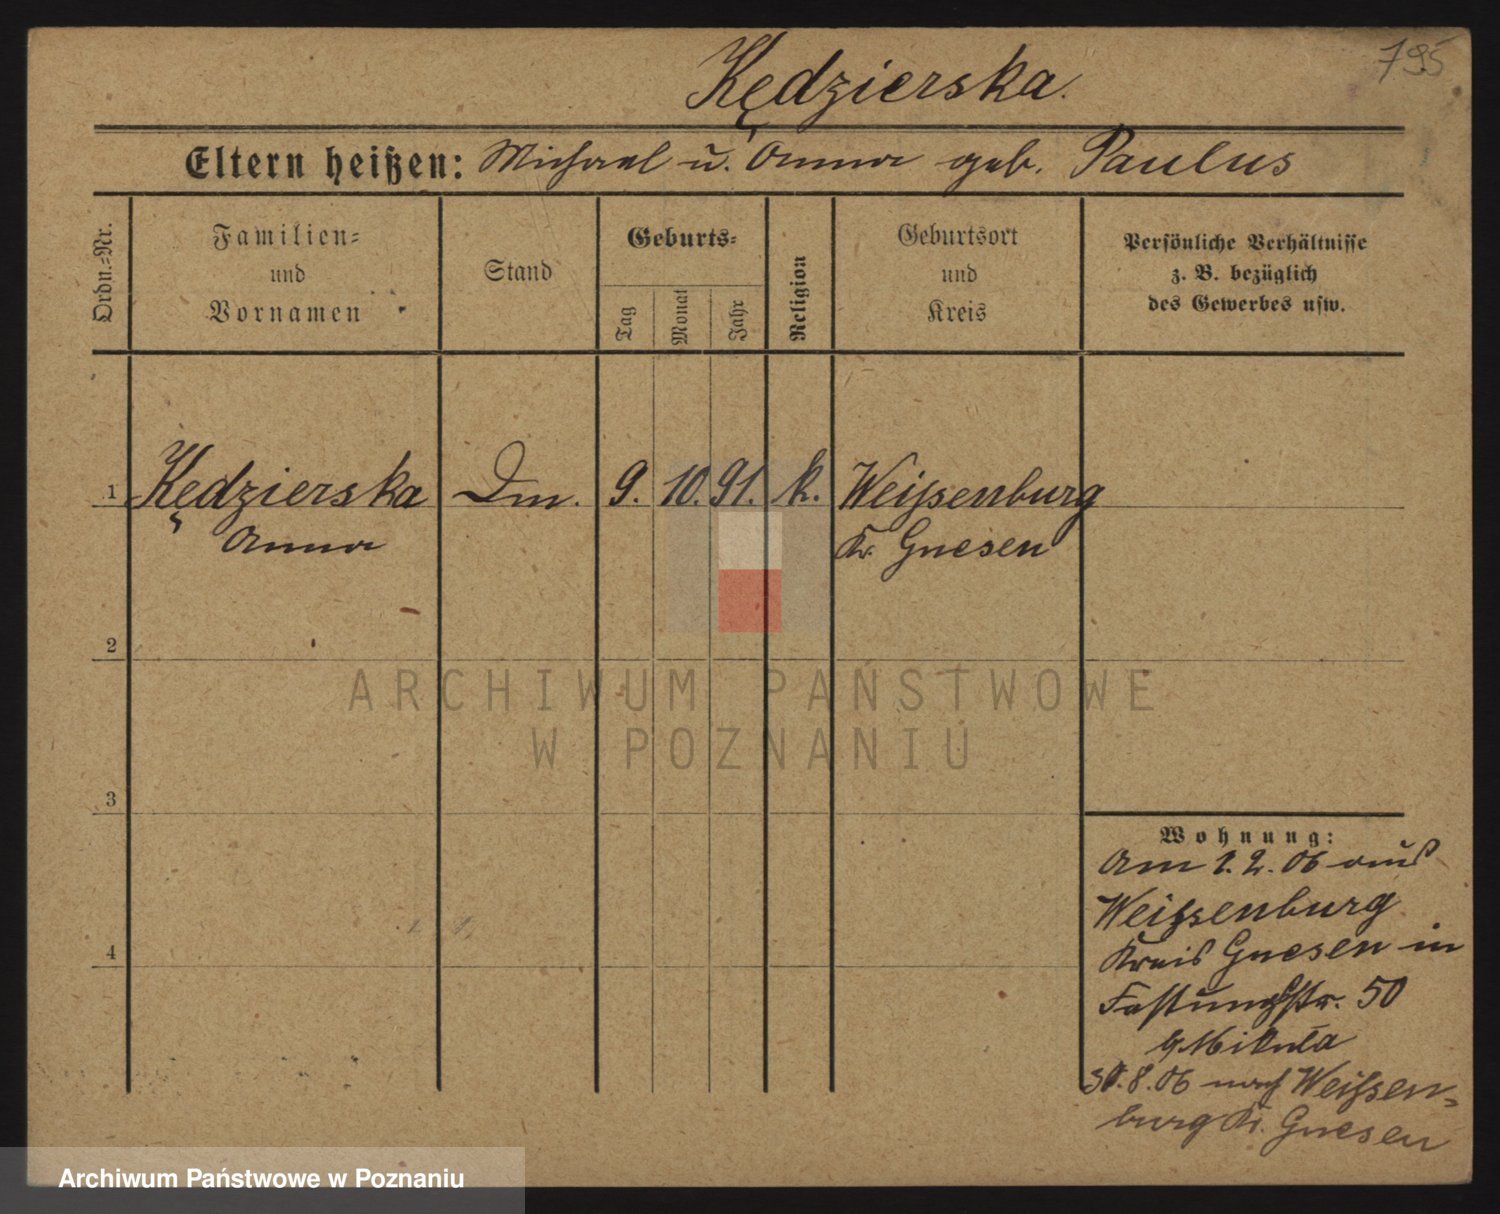 795
Kędzierska.
Eltern heißen: Michael u. Anna geb. Paulus
Ordn.-Nr.
Familien- und Vornamen
Stand
Geburts-
Tag
Monat
Jahr
Religion
Geburtsort und Kreis
Persönliche Verhältnisse
z. B. bezüglich
des Gewerbes usw.
1 Kędzierska Dm. 9. 10. 91. k. Weissenburg
Anna Kr. Gnesen
2
ARCHIWUM PAŃSTWOWE
W POZNANIU
3
Wohnung:
Am 1.2.06 aus
Weissenburg
Kreis Gnesen in
Festungsstr. 50
b/Mikula
4
30.8.06 nach Weissen-
burg Kr. Gnesen
Archiwum Państwowe w Poznaniu